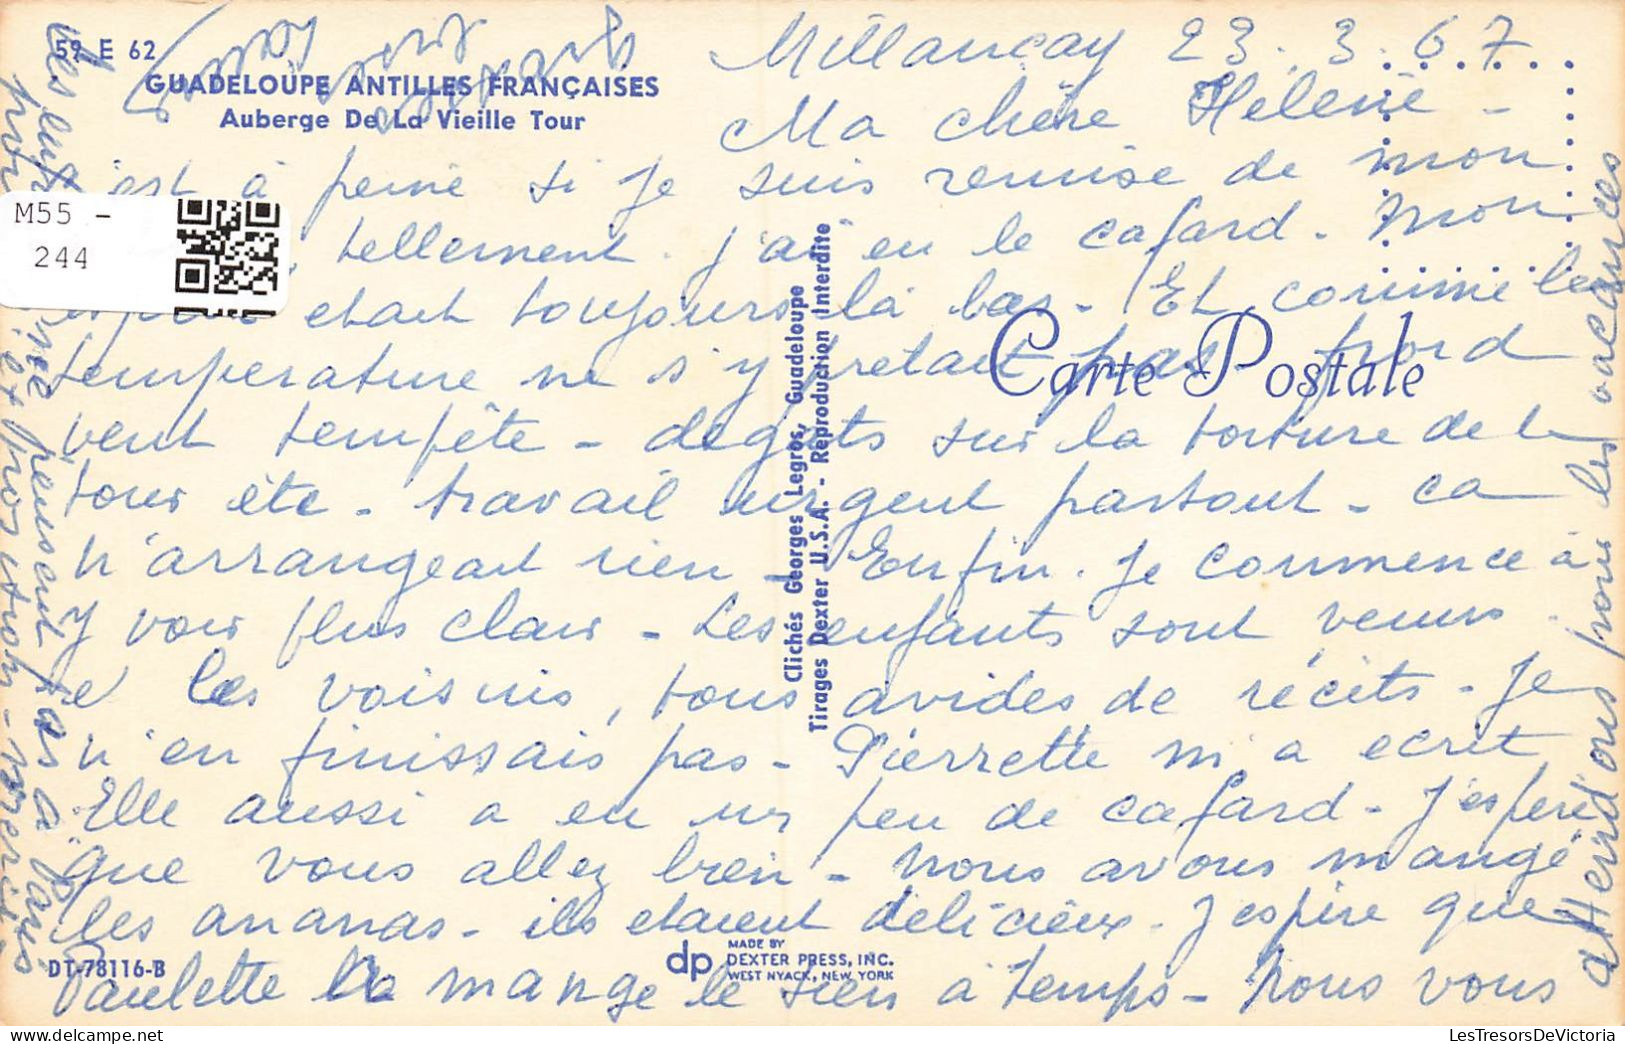 59 E 62
GUADELOUPE ANTILLES FRANÇAISES
Auberge De La Vieille Tour
M55 -
244
Millançay 23.3.67
Ma chère Hélène -
est à peine si je suis remise de mon
tellement j'ai eu le cafard. Mon
etait toujours là bas. Et comme la
temperature ne s'y pretait pas froid
vent tempête - degats sur la toiture de la
tour etc - travail urgent partout - ca
n'arrangeait rien - Enfin. Je commence à
y voir plus clair - Les enfants sont venus
e les voisins, tous avides de récits - Je
n'en finissais pas - Pierrette m'a ecrit
Elle aussi a eu un peu de cafard - J'espère
que vous allez bien - nous avons mangé
les ananas - ils etaient délicieux. J'espère que
Paulette a mangé le sien à temps - Nous vous
attendons pour les vacances
pensent pas à Paris
Carte Postale
Clichés Georges Legros, Guadeloupe
Tirages Dexter U.S.A. - Réproduction Interdite
DT-78116-B
dp
MADE BY
DEXTER PRESS, INC.
WEST NYACK, NEW YORK
LesTresorsDeVictoria.com